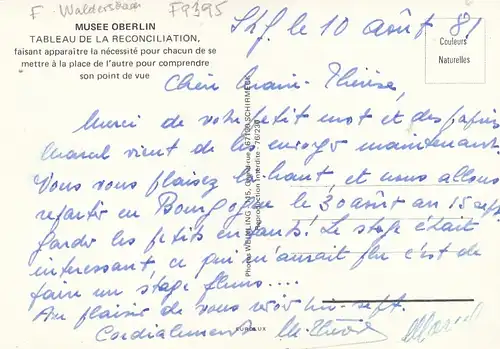 F. Waldersbach F9395
MUSEE OBERLIN
TABLEAU DE LA RECONCILIATION,
faisant apparaître la nécessité pour chacun de se
mettre à la place de l'autre pour comprendre
son point de vue
Couleurs
Naturelles
le 10 Août 81
Chère Marie-Thérèse,
Merci de votre petit mot et des papiers
Marcel vient de les envoyer maintenant.
Vous vous plaisez là-haut, et nous allons
repartir en Bourgogne le 30 août au 15 sept
garder les petits enfants! Le stage était
intéressant, ce qui m'aurait plu c'est de
faire un stage
Au plaisir de vous voir mi-sept.
Cordialement M. Thérèse Marcel
67130 SCHIRMECK
Reproduction interdite - 76/230
EUROLUX